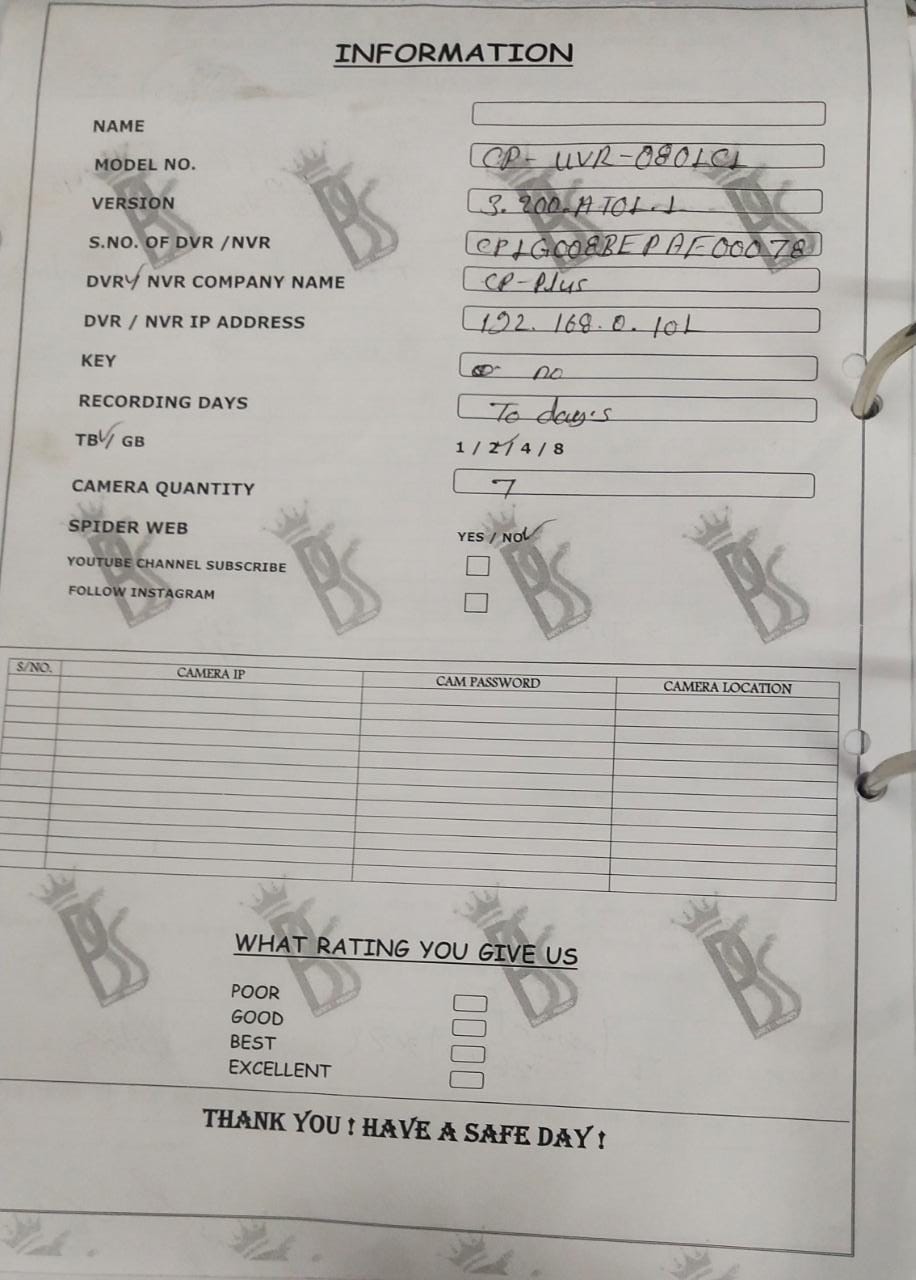 INFORMATION
NAME
MODEL NO. CP-UVR-0801C1
VERSION 3.200.AT01.1
S.NO. OF DVR /NVR
DVR✓/ NVR COMPANY NAME CP-Plus
DVR / NVR IP ADDRESS 192.168.0.101
KEY no
RECORDING DAYS days
TB✓/ GB 1 / 2✓/ 4 / 8
CAMERA QUANTITY 7
SPIDER WEB YES / NO✓
YOUTUBE CHANNEL SUBSCRIBE
FOLLOW INSTAGRAM
S/NO. CAMERA IP CAM PASSWORD CAMERA LOCATION
WHAT RATING YOU GIVE US
POOR
GOOD
BEST
EXCELLENT
THANK YOU ! HAVE A SAFE DAY !